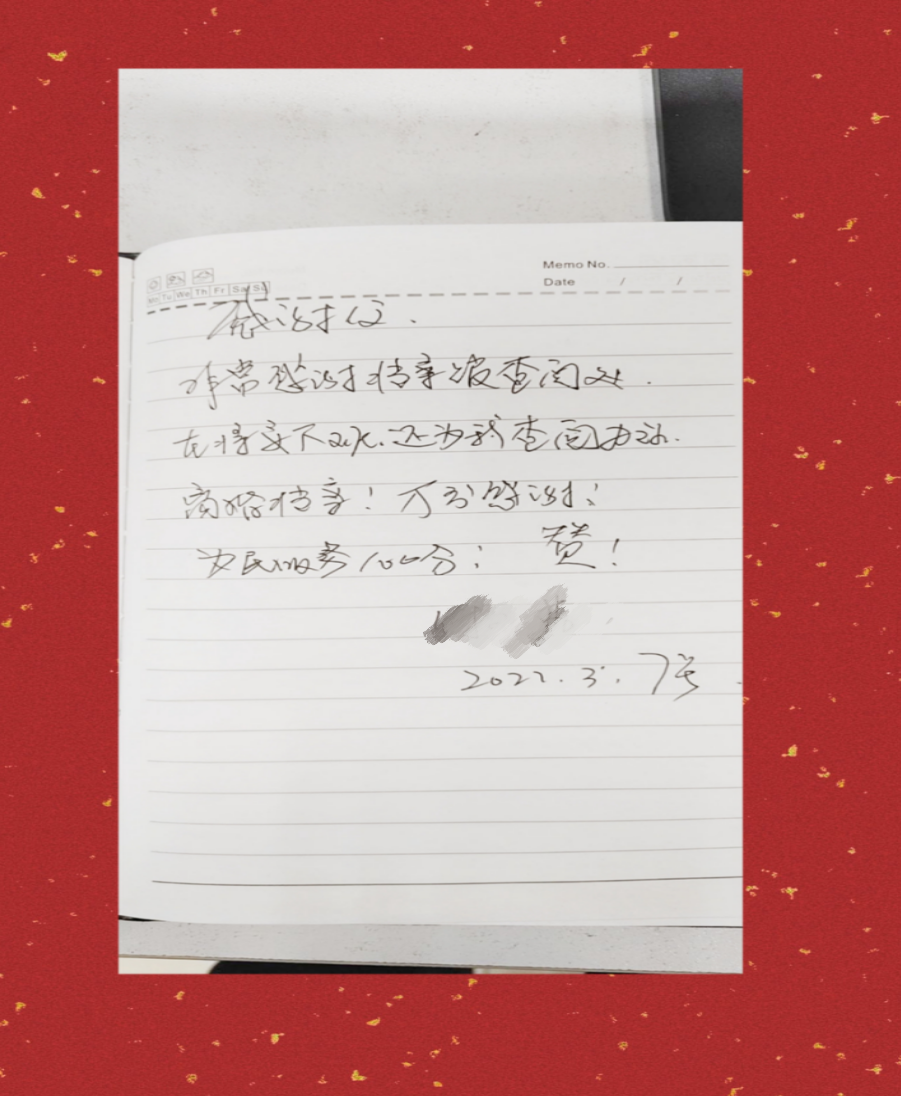 Memo No.
Date / /
Mo Tu We Th Fr Sa Su
感谢信.
非常感谢档案馆查阅处.
在将要下班.还为我查阅办理.
离婚档案！万分感谢！
为民服务100分！ 赞！
2022.3.7号